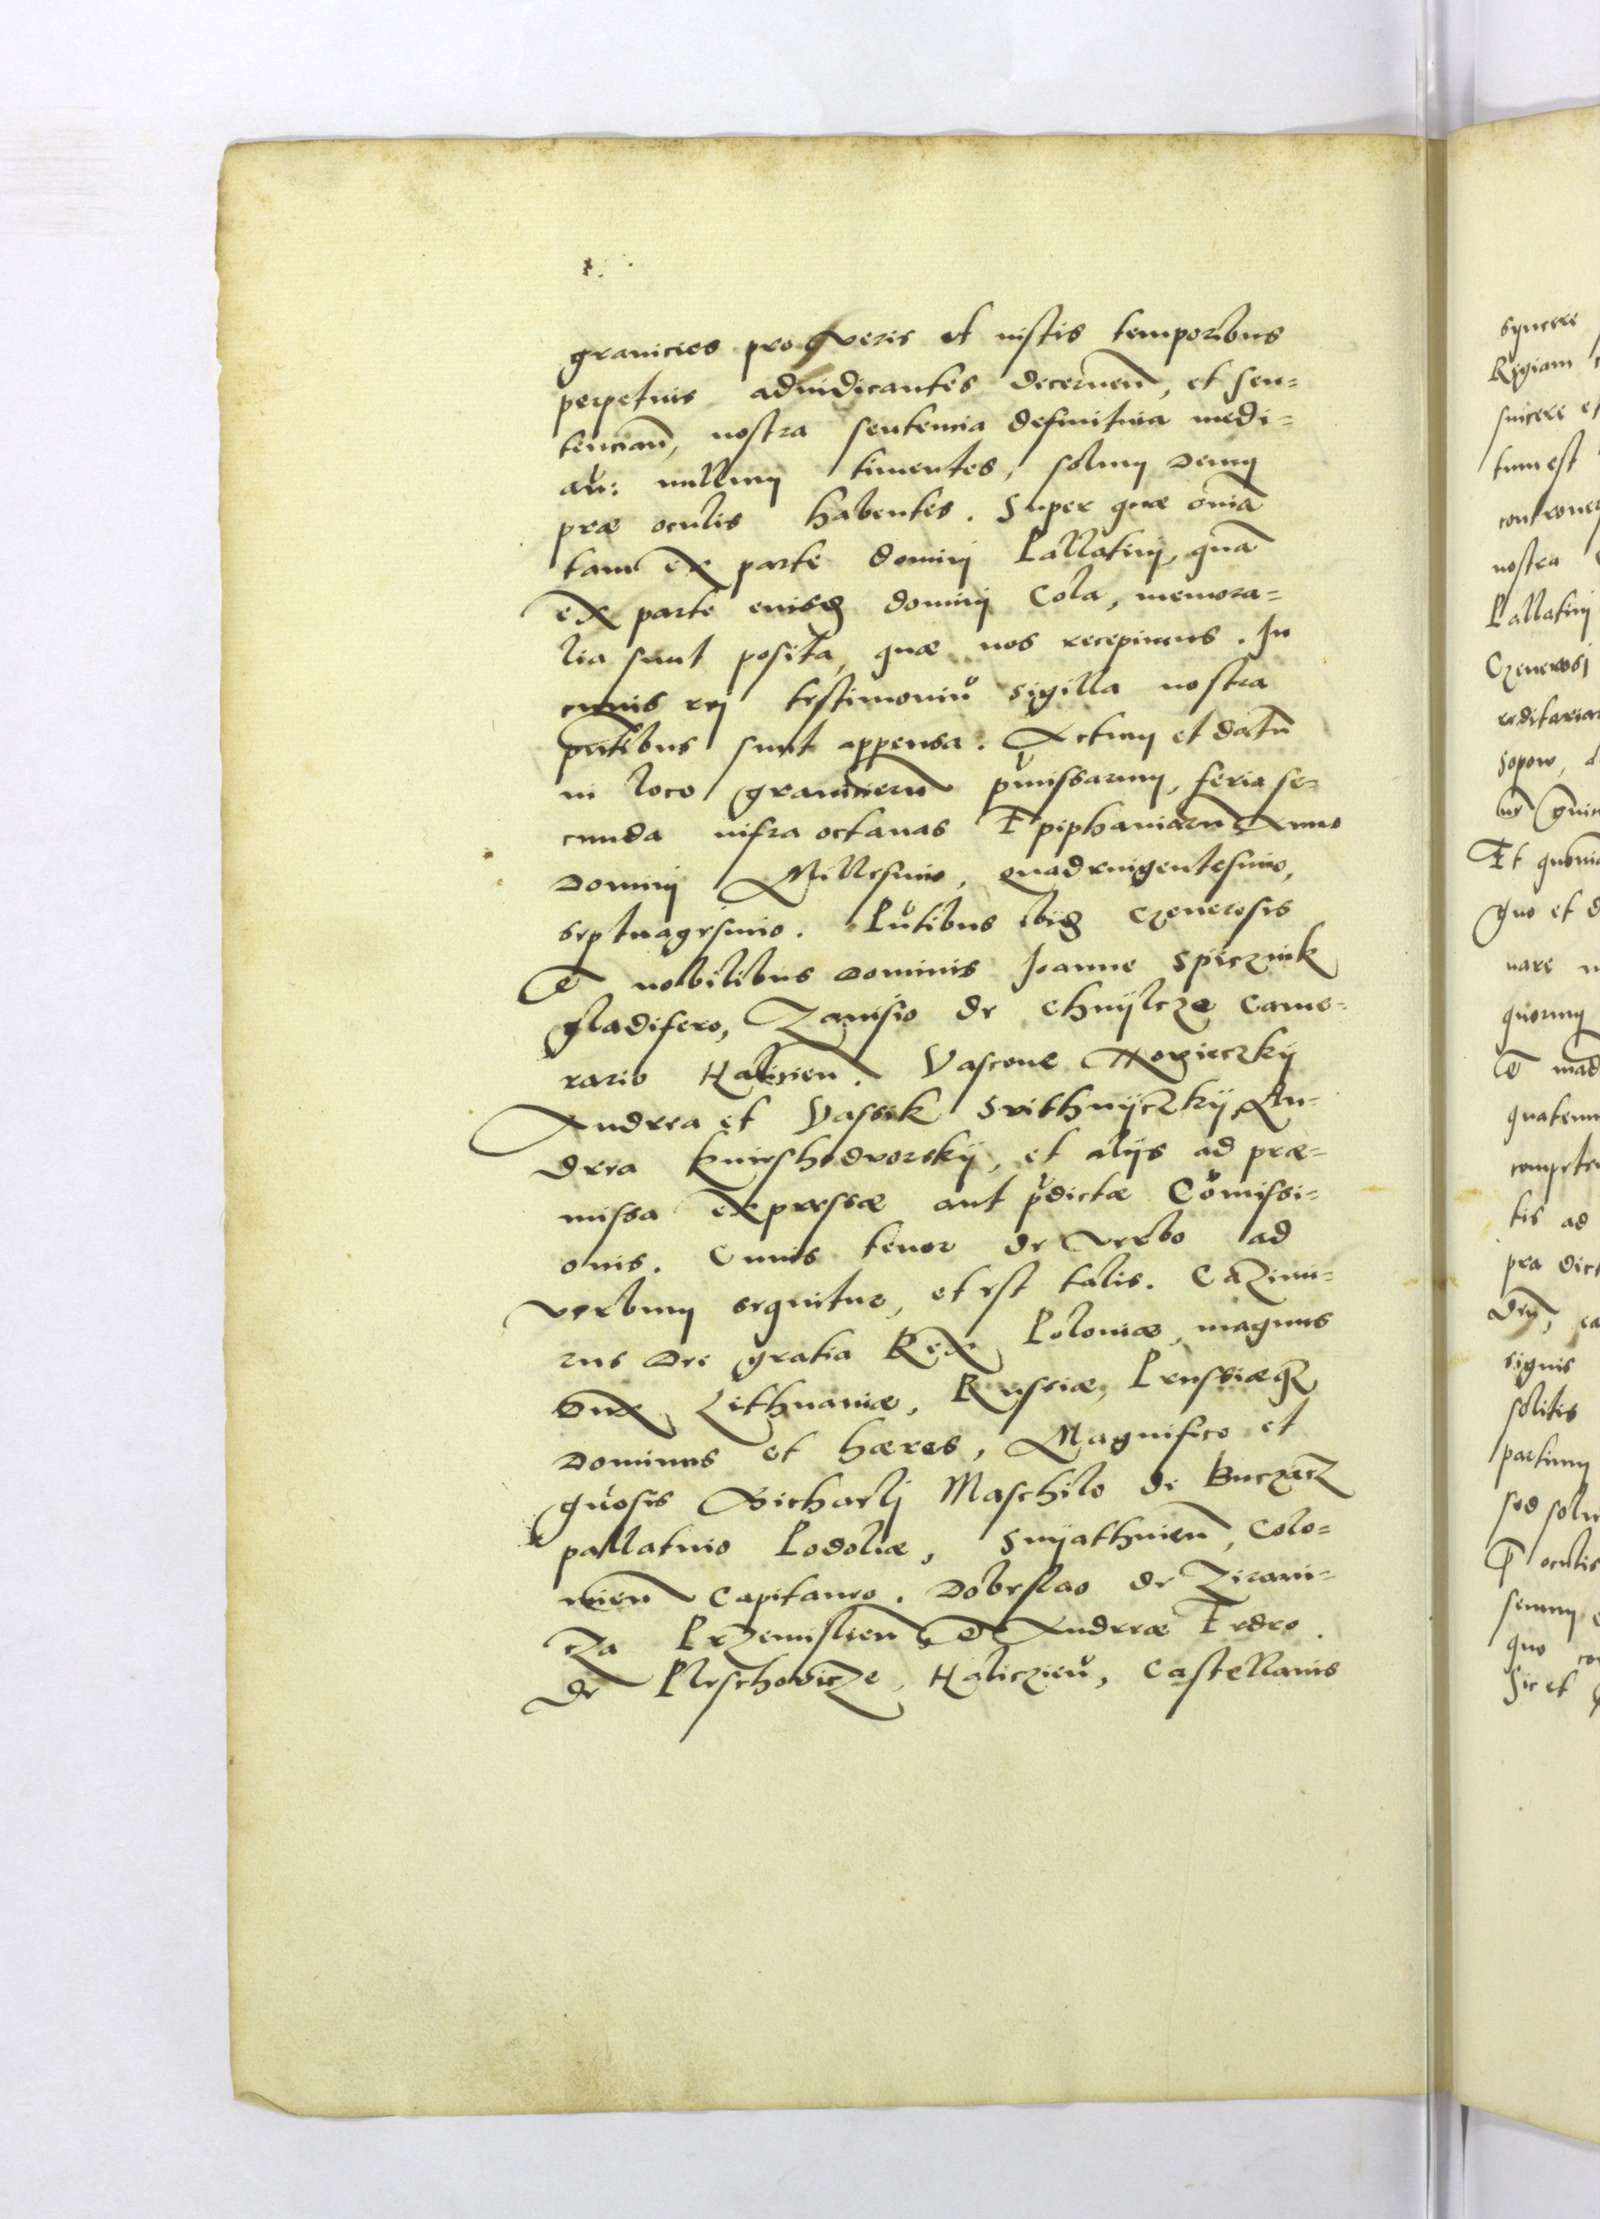 granicies pro veris et iustis temporibus
perpetuis adiudicantes decernen̄, et sen=
tencian̄, nostra sentencia definitiua medi=
aū: nullum timentes, solum Deum
præ oculis habentes. Super quæ om̄ia
tam ex parte dominj Pallatinj, quā
ex parte eiusdē dominj Cola, memora=
lia sunt posita, quæ nos recepimus. In
cuius rej testimoniū sigilla nostra
pn̄tibus sunt appensa. Actum et datū
in loco granicierū p̄missarum, feria se=
cunda infra octauas Epiphaniarū Anno
Dominj Millesimo, quadringentesimo,
septuagesimo. Pn̄tibus ibidē Generosis
et nobilibus Dominis Joanne Spicznik
gladifero, Zanisio de Chmijelcze Came=
rario Halicien̄. Vascone
Andrea et Vassek Svithnijczkij An=
drea Knieshodvorskij, et alijs ad præ=
missa expressæ aut p̄dictæ Com̄issi=
onis. Cuius tenor de verbo ad
verbum sequitur, et est talis. Cazimi=
rus Dei gratia Rex Poloniæ, magnus
Dux Lithuaniæ, Russiæ, Prussiæq3
Dominus et hæres, Magnifico et
gn̄osis Michaelj Maschilo de Buczacz
pallatino Podoliæ, Snijathnien̄, Colo=
mien̄ Capitaneo. Dobeslao de Ziraui=
cza Przemislien̄ et Andreæ Fredro
de Pleschovicze, Haliczien̄, Castellanis